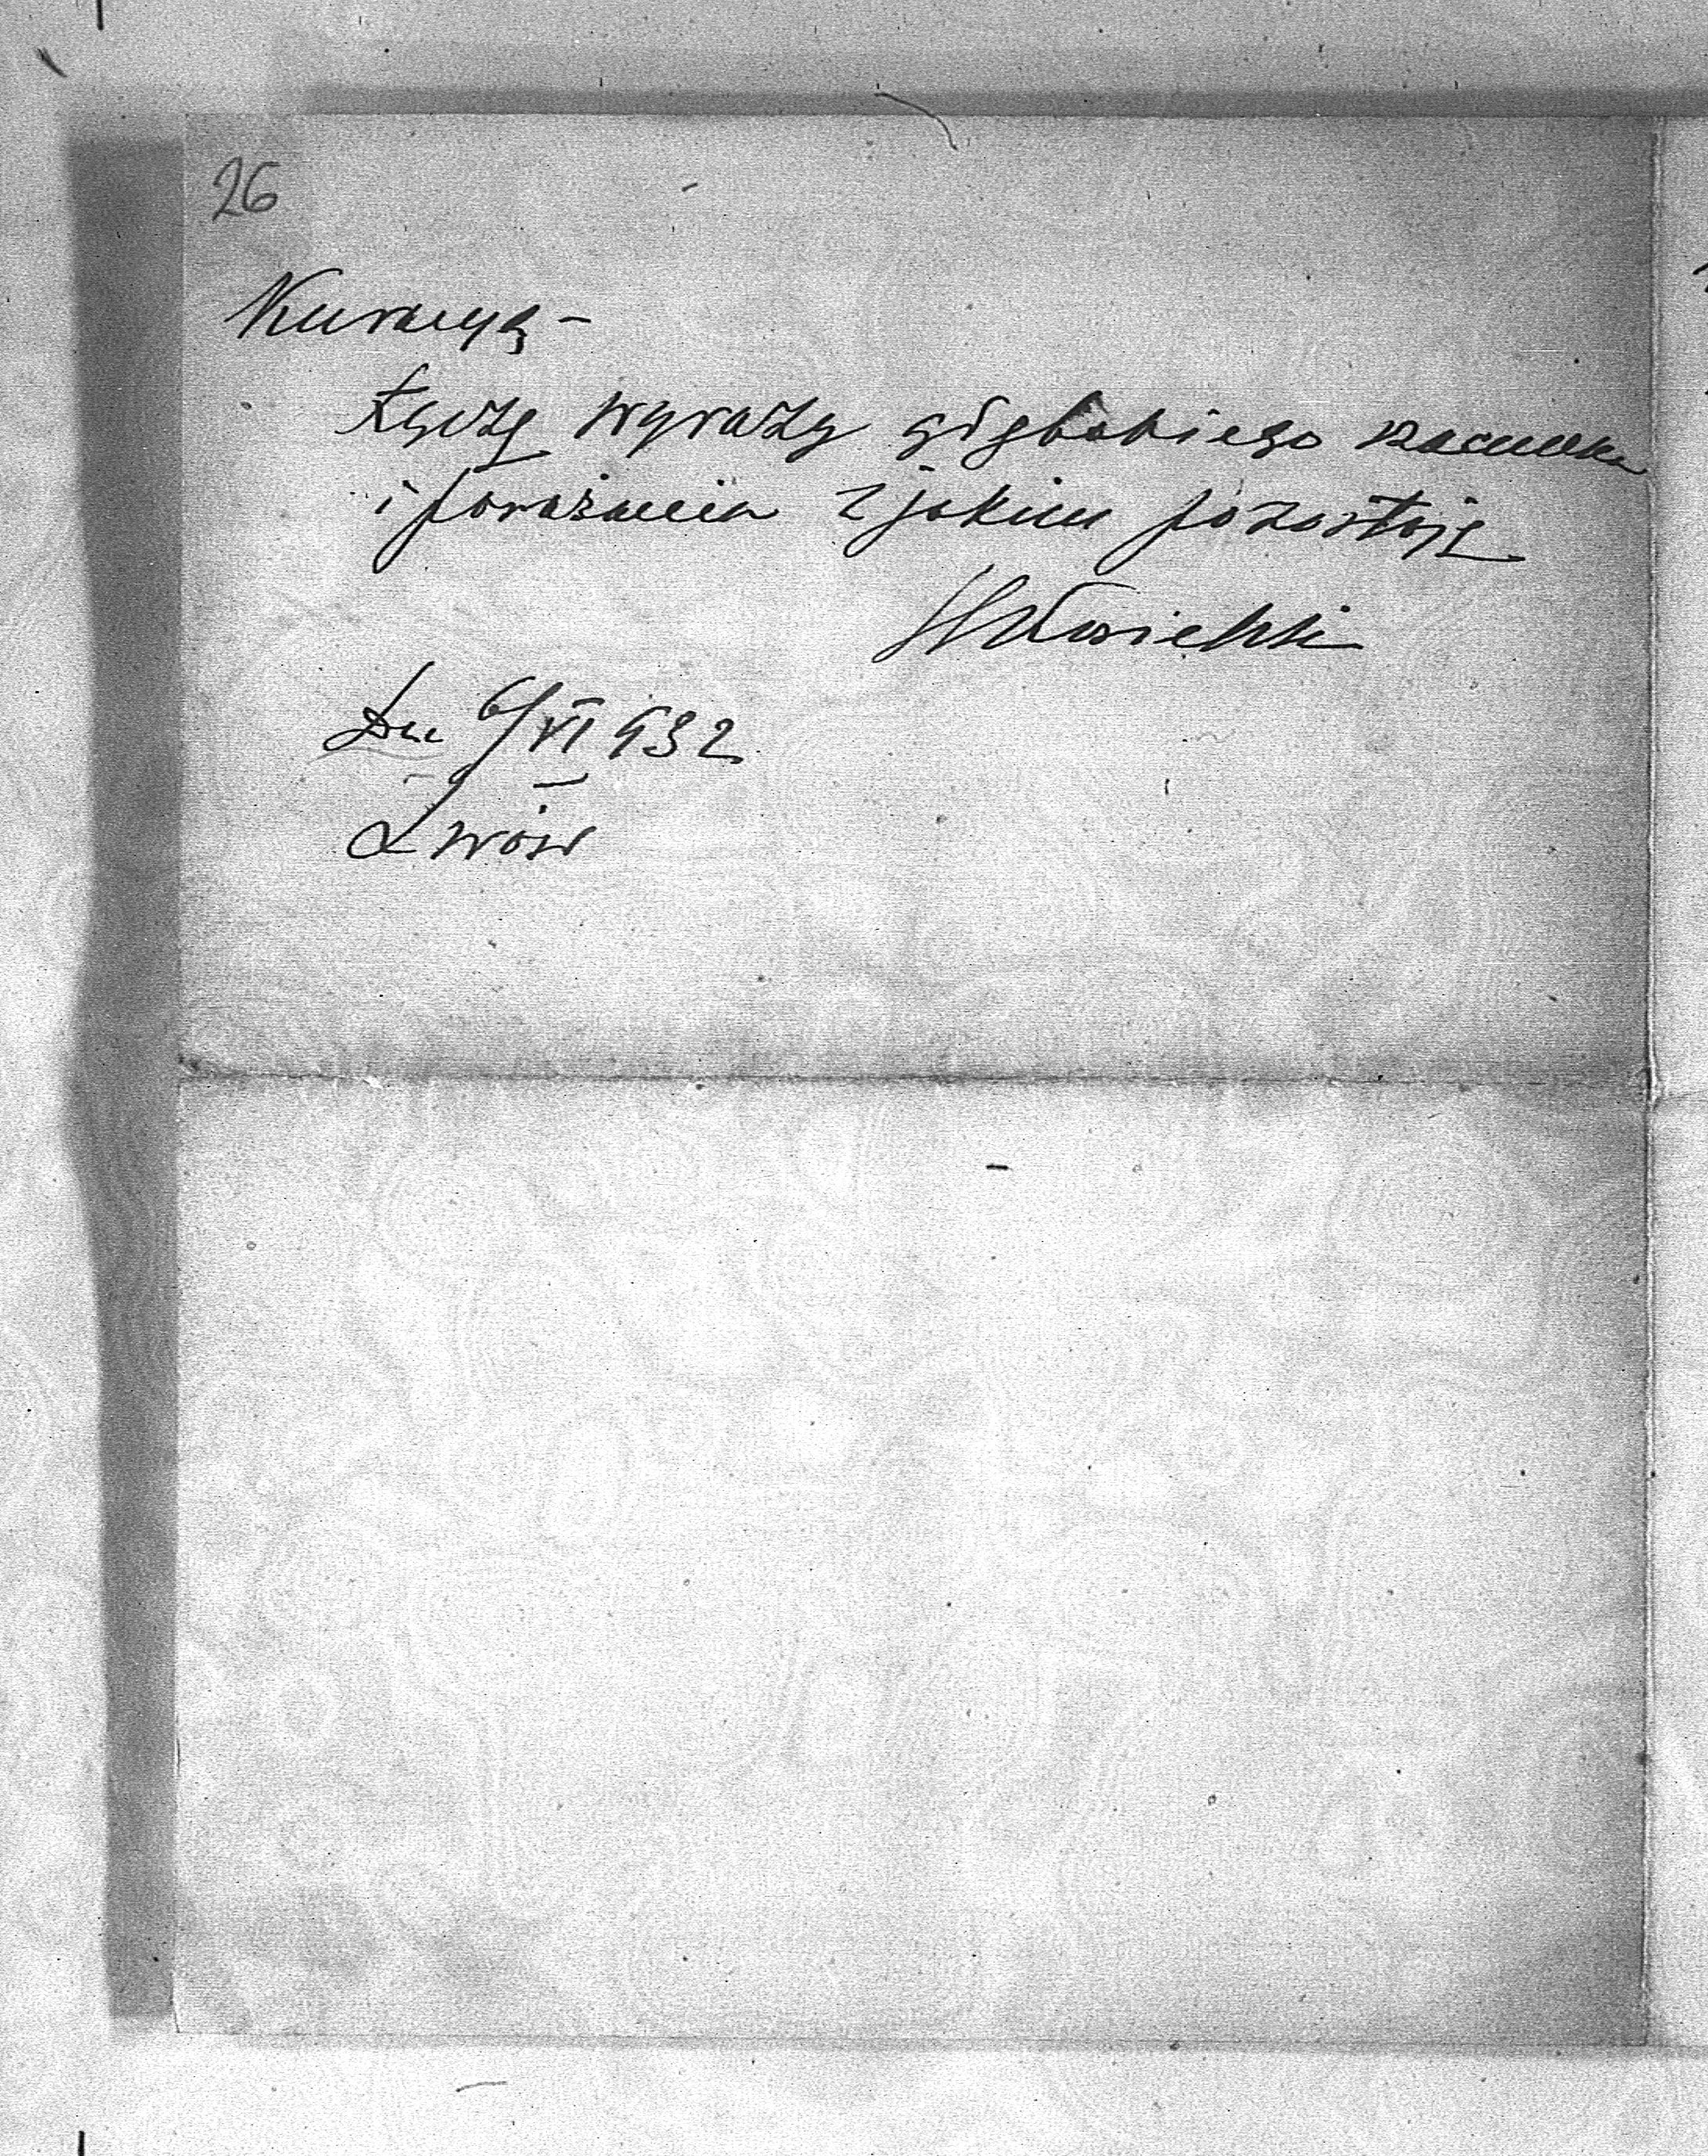 26
Kuracyą –
Łączę wyrazy głębokiego szacunku
i poważania z jakim pozostaję
Dn 6/VI 932
Lwów